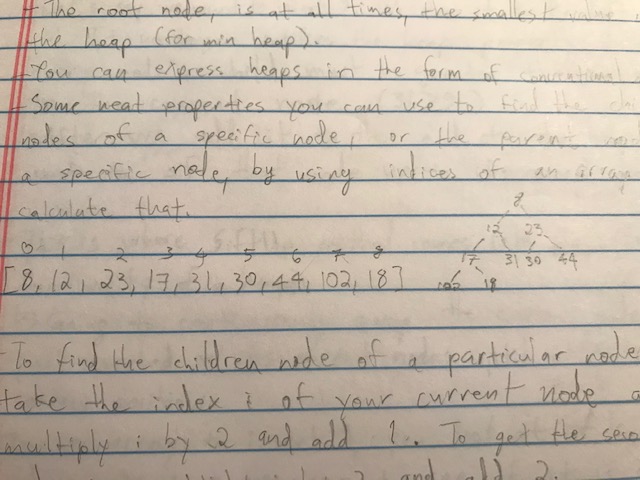 - The root node, is at all times, the smallest value
the heap (for min heap).
- You can express heaps in the form of
- Some neat properties you can use to find the
nodes of a specific node, or the parent
a specific node, by using indices of an array
calculate that.
8
12 23
17 31 30 44
102 18
0 1 2 3 4 5 6 7 8
[8, 12, 23, 17, 31, 30, 44, 102, 18]
- To find the children node of a particular node
take the index i of your current node
multiply i by 2 and add 1. To get the
2 and add 2.